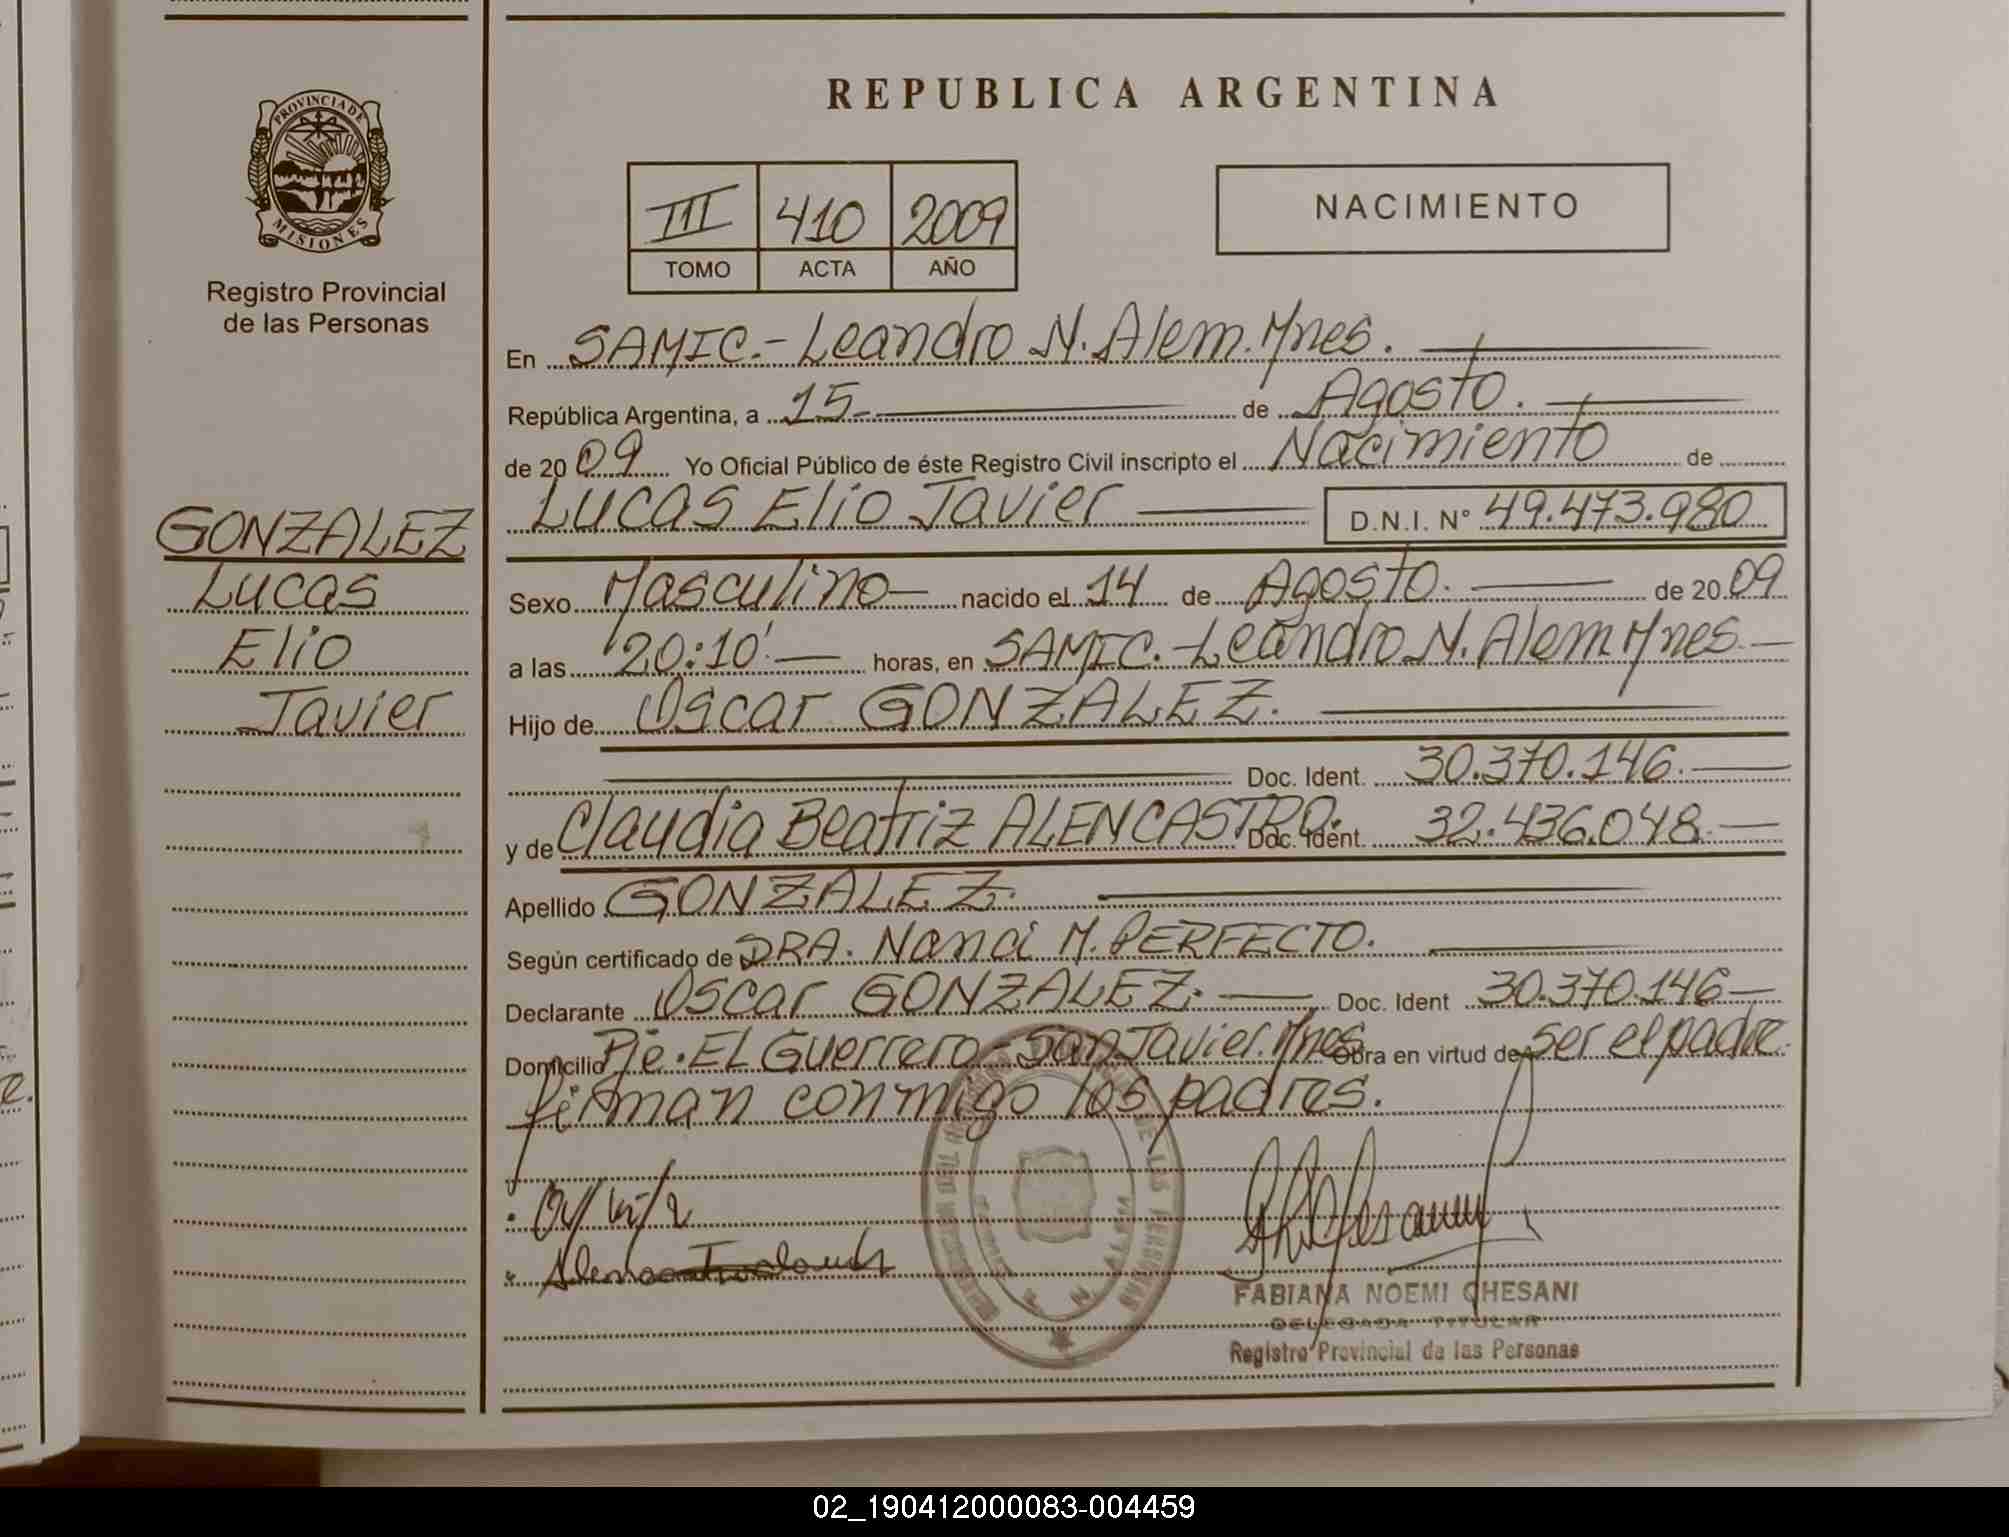 REPUBLICA ARGENTINA
PROVINCIA DE
MISIONES
Registro Provincial
de las Personas
III 410 2009
TOMO ACTA AÑO
NACIMIENTO
En SAMIC.- Leandro N. Alem. Mnes.
República Argentina, a 15 de Agosto.
de 20 09 Yo Oficial Público de éste Registro Civil inscripto el Nacimiento de
Lucas Elio Javier D.N.I. N° 49.473.980
GONZALEZ
Lucas
Elio
Javier
Sexo Masculino nacido el 14 de Agosto. de 20 09
a las 20:10' horas, en SAMIC. - Leandro N. Alem Mnes.
Hijo de Oscar GONZALEZ.
Doc. Ident. 30.370.146.
y de Claudia Beatriz ALENCASTRO. Doc. Ident. 32.436.048.
Apellido GONZALEZ.
Según certificado de DRA. Nanci M. PERFECTO.
Declarante Oscar GONZALEZ. Doc. Ident 30.370.146
Domicilio Pje. El Guerrero - San Javier. Mnes Obra en virtud de ser el padre.
firman conmigo los padres.
FABIANA NOEMI CHESANI
DELEGADA TITULAR
Registro Provincial de las Personas
02_190412000083-004459